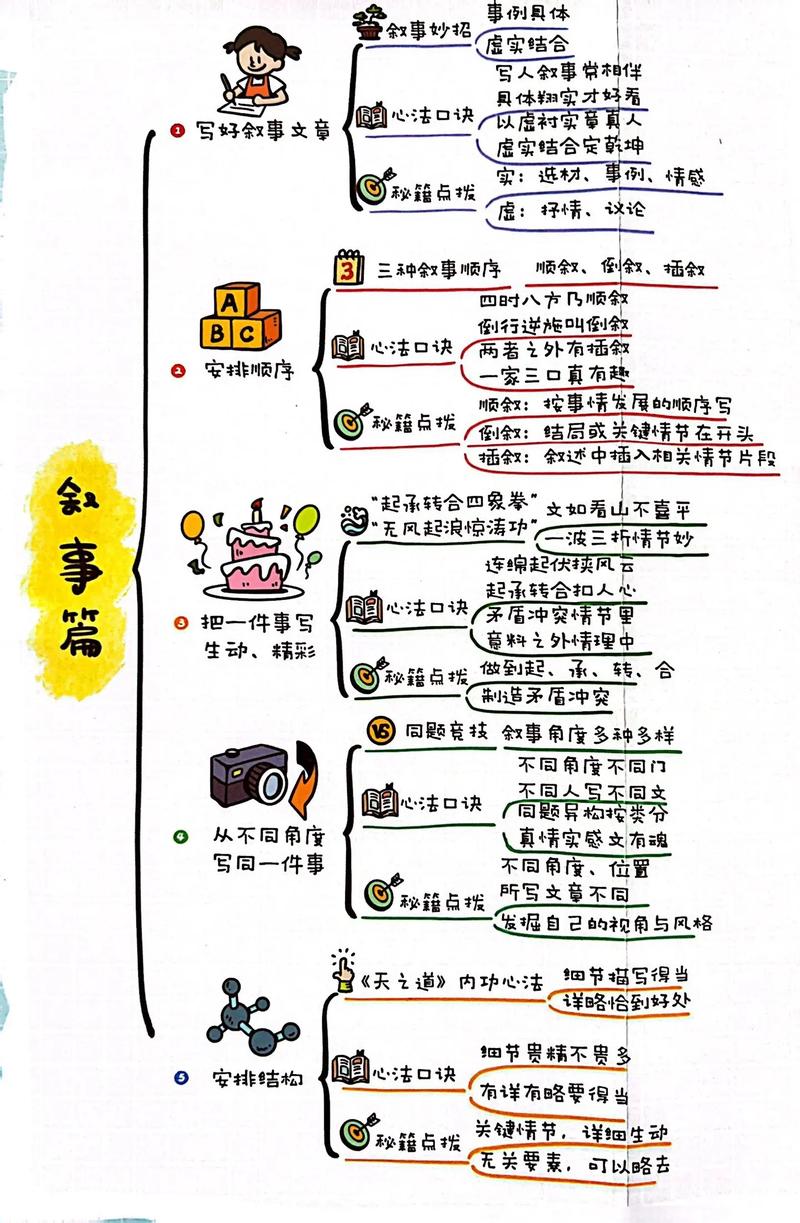 叙事篇
1 写好叙事文章
叙事妙招
事例具体
虚实结合
心法口诀
写人叙事常相伴
具体翔实才好看
以虚衬实章真人
虚实结合定乾坤
秘籍点拨
实：选材、事例、情感
虚：抒情、议论
A
B C
2 安排顺序
3 三种叙事顺序
顺叙、倒叙、插叙
心法口诀
四时八方乃顺叙
倒行逆施叫倒叙
两者之外有插叙
一家三口真有趣
秘籍点拨
顺叙：按事情发展的顺序写
倒叙：结局或关键情节在开头
插叙：叙述中插入相关情节片段
3 把一件事写
生动、精彩
“起承转合四象拳”
“无风起浪惊涛功”
文如看山不喜平
一波三折情节妙
心法口诀
连绵起伏挟风云
起承转合扣人心
矛盾冲突情节里
意料之外情理中
秘籍点拨
做到起、承、转、合
制造矛盾冲突
4 从不同角度
写同一件事
VS 同题竞技
叙事角度多种多样
心法口诀
不同角度不同门
不同人写不同文
同题异构按类分
真情实感文有魂
秘籍点拨
不同角度、位置
所写文章不同
发掘自己的视角与风格
5 安排结构
《天之道》内功心法
细节描写得当
详略恰到好处
心法口诀
细节贵精不贵多
有详有略要得当
秘籍点拨
关键情节，详细生动
无关要素，可以略去